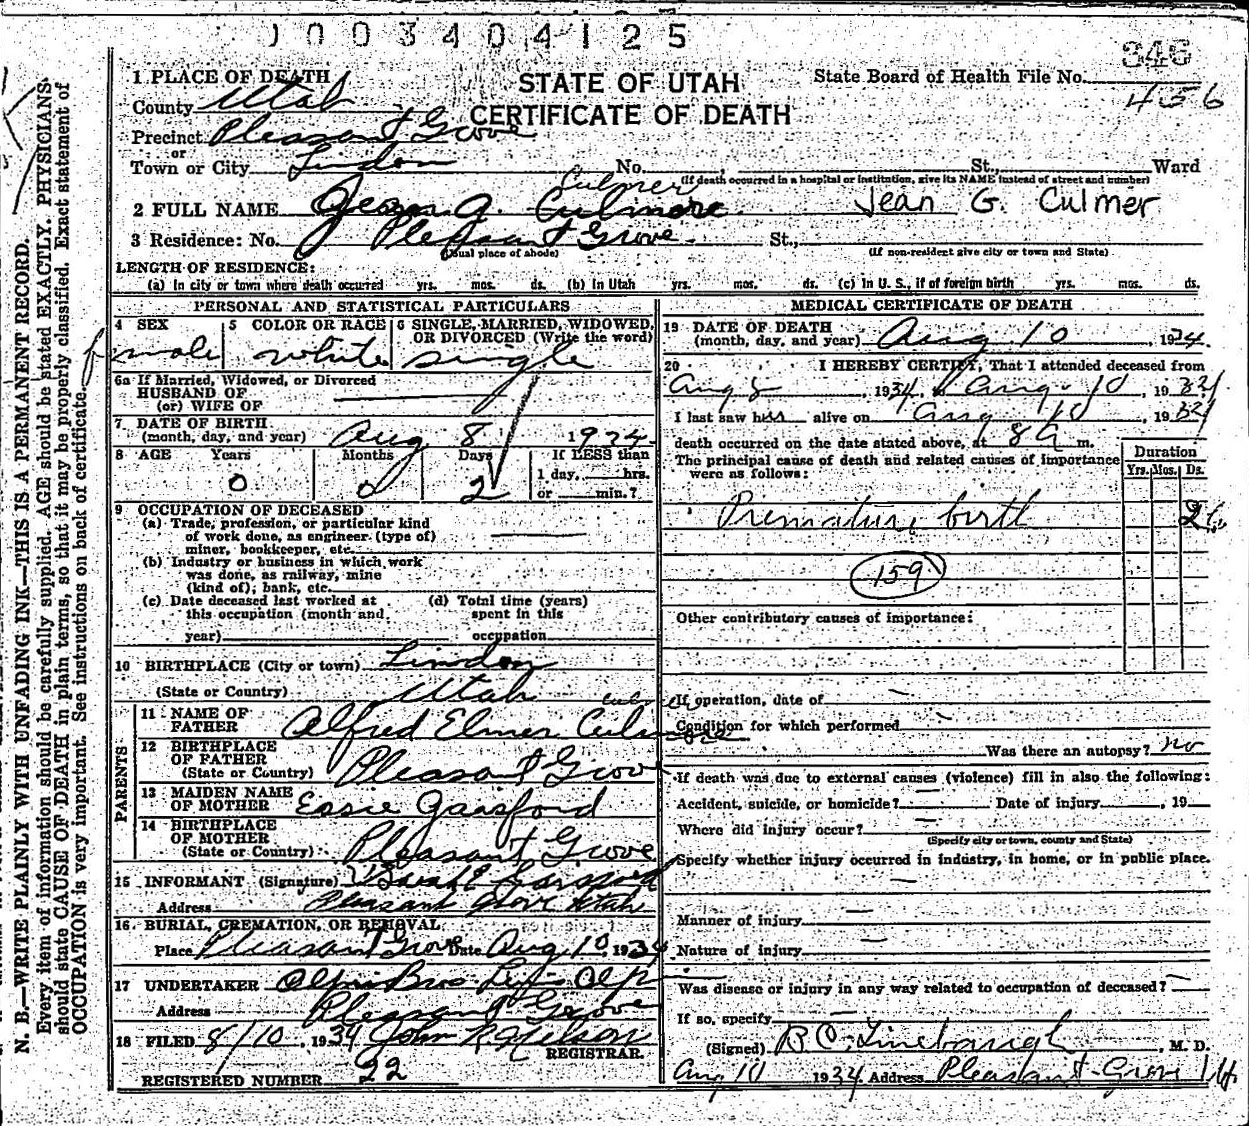 J 0 0 3 4 0 4 1 2 5
346
1 PLACE OF DEATH
STATE OF UTAH
State Board of Health File No.
456
County Utah
CERTIFICATE OF DEATH
Precinct Pleasant Grove
or
Town or City Lindon No. St., Ward
(If death occurred in a hospital or institution, give its NAME instead of street and number)
Culmer
2 FULL NAME G. Culmore. Jean G. Culmer
3 Residence: No. Pleasant Grove. St.,
(Usual place of abode) (If non-resident give city or town and State)
LENGTH OF RESIDENCE:
(a) In city or town where death occurred yrs. mos. ds. (b) In Utah yrs. mos. ds. (c) In U. S., if of foreign birth yrs. mos. ds.
PERSONAL AND STATISTICAL PARTICULARS
4 SEX male
5 COLOR OR RACE white
6 SINGLE, MARRIED, WIDOWED, OR DIVORCED (Write the word) single
6a If Married, Widowed, or Divorced
HUSBAND OF
(or) WIFE OF
7 DATE OF BIRTH
(month, day, and year) Aug 8 1934
8 AGE Years Months Days If LESS than
0 0 2 1 day, hrs.
or min.?
9 OCCUPATION OF DECEASED
(a) Trade, profession, or particular kind
of work done, as engineer (type of)
miner, bookkeeper, etc.
(b) Industry or business in which work
was done, as railway, mine
(kind of); bank, etc.
(c) Date deceased last worked at
this occupation (month and
year)
(d) Total time (years)
spent in this
occupation
10 BIRTHPLACE (City or town) Lindon
(State or Country) Utah
PARENTS
11 NAME OF
FATHER Alfred Elmer
12 BIRTHPLACE
OF FATHER
(State or Country) Pleasant Grove
13 MAIDEN NAME
OF MOTHER Essie
14 BIRTHPLACE
OF MOTHER
(State or Country) Pleasant Grove
15 INFORMANT (Signature)
Address Pleasant Grove Utah
16 BURIAL, CREMATION, OR REMOVAL
Place Pleasant Grove Date Aug 10, 1934
17 UNDERTAKER Bros
Address Pleasant Grove
18 FILED 8/10, 1934 John Nelson
REGISTRAR.
REGISTERED NUMBER 22
MEDICAL CERTIFICATE OF DEATH
19 DATE OF DEATH
(month, day, and year) Aug 10 1934.
20 I HEREBY CERTIFY, That I attended deceased from
Aug 8, 1934, Aug 10, 1934
I last saw alive on Aug 10, 1934
death occurred on the date stated above, at 8 a m.
The principal cause of death and related causes of importance
were as follows:
Duration
Yrs. Mos. Ds.
Premature birth 2
159
Other contributory causes of importance:
If operation, date of
Condition for which performed
Was there an autopsy? no
If death was due to external causes (violence) fill in also the following:
Accident, suicide, or homicide? Date of injury , 19
Where did injury occur?
(Specify city or town, county and State)
Specify whether injury occurred in industry, in home, or in public place.
Manner of injury
Nature of injury
Was disease or injury in any way related to occupation of deceased?
If so, specify
(Signed) , M. D.
Aug 10 1934 Address Pleasant Grove Ut.
N. B.—WRITE PLAINLY WITH UNFADING INK—THIS IS A PERMANENT RECORD.
Every item of information should be carefully supplied. AGE should be stated EXACTLY. PHYSICIANS
should state CAUSE OF DEATH in plain terms, so that it may be properly classified. Exact statement of
OCCUPATION is very important. See instructions on back of certificate.